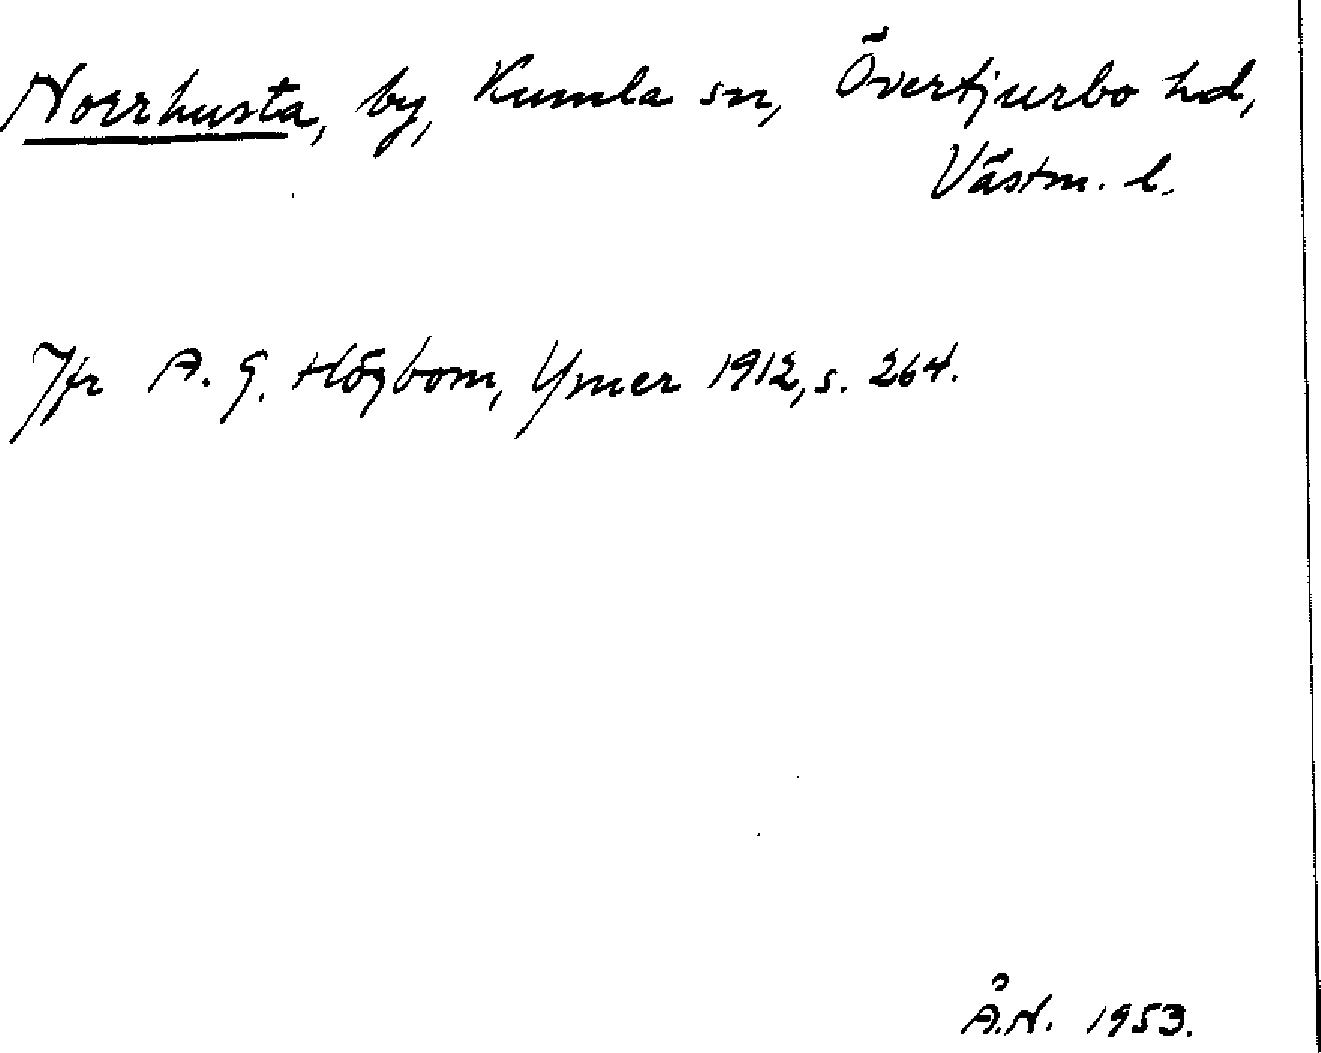 Norrhusta, by, Kumla sn, Övertjurbo hd,
Västm. l.
Jfr A. G. Högbom, Ymer 1912, s. 264.
Å.N. 1953.